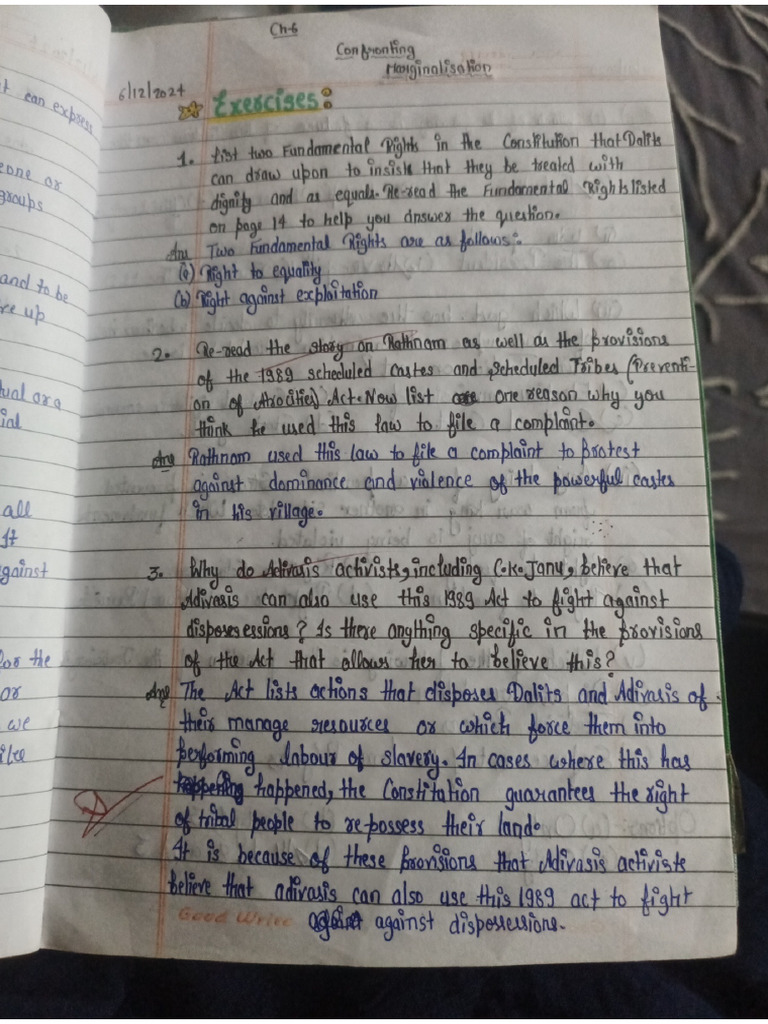 t can express
eone or
groups
and to be
re up
ual or a
ial
all
It
gainst
for the
or
we
Ch-6
Confronting
Marginalisation
6/12/2024
Exercises:
1. List two Fundamental Rights in the Constitution that Dalits
can draw upon to insist that they be treated with
dignity and as equals. Re-read the Fundamental Rights listed
on page 14 to help you answer the question.
Ans Two Fundamental Rights are as follows:
(a) Right to equality
(b) Right against exploitation
2. Re-read the story on Rathnam as well as the provisions
of the 1989 scheduled castes and scheduled Tribes (Preventi-
on of Atrocities) Act. Now list one reason why you
think he used this law to file a complaint.
Ans Rathnam used this law to file a complaint to protest
against dominance and violence of the powerful castes
in his village.
3. Why do Adivasis activists, including C.K. Janu, believe that
Adivasis can also use this 1989 Act to fight against
disposesessions? Is there anything specific in the provisions
of the Act that allows her to believe this?
Ans The Act lists actions that disposes Dalits and Adivasis of
their manage resources or which force them into
performing labour of slavery. In cases where this has
happened, the Constitation guarantees the right
of tribal people to re possess their land.
It is because of these provisions that Adivasis activists
believe that adivasis can also use this 1989 act to fight
Good Write
against dispossessions.